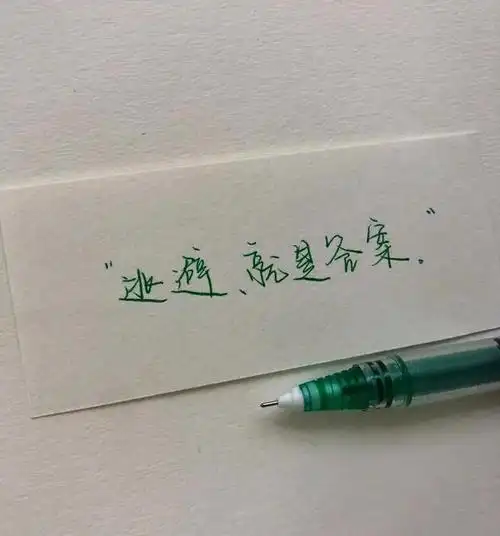 “逃避、就是答案.”